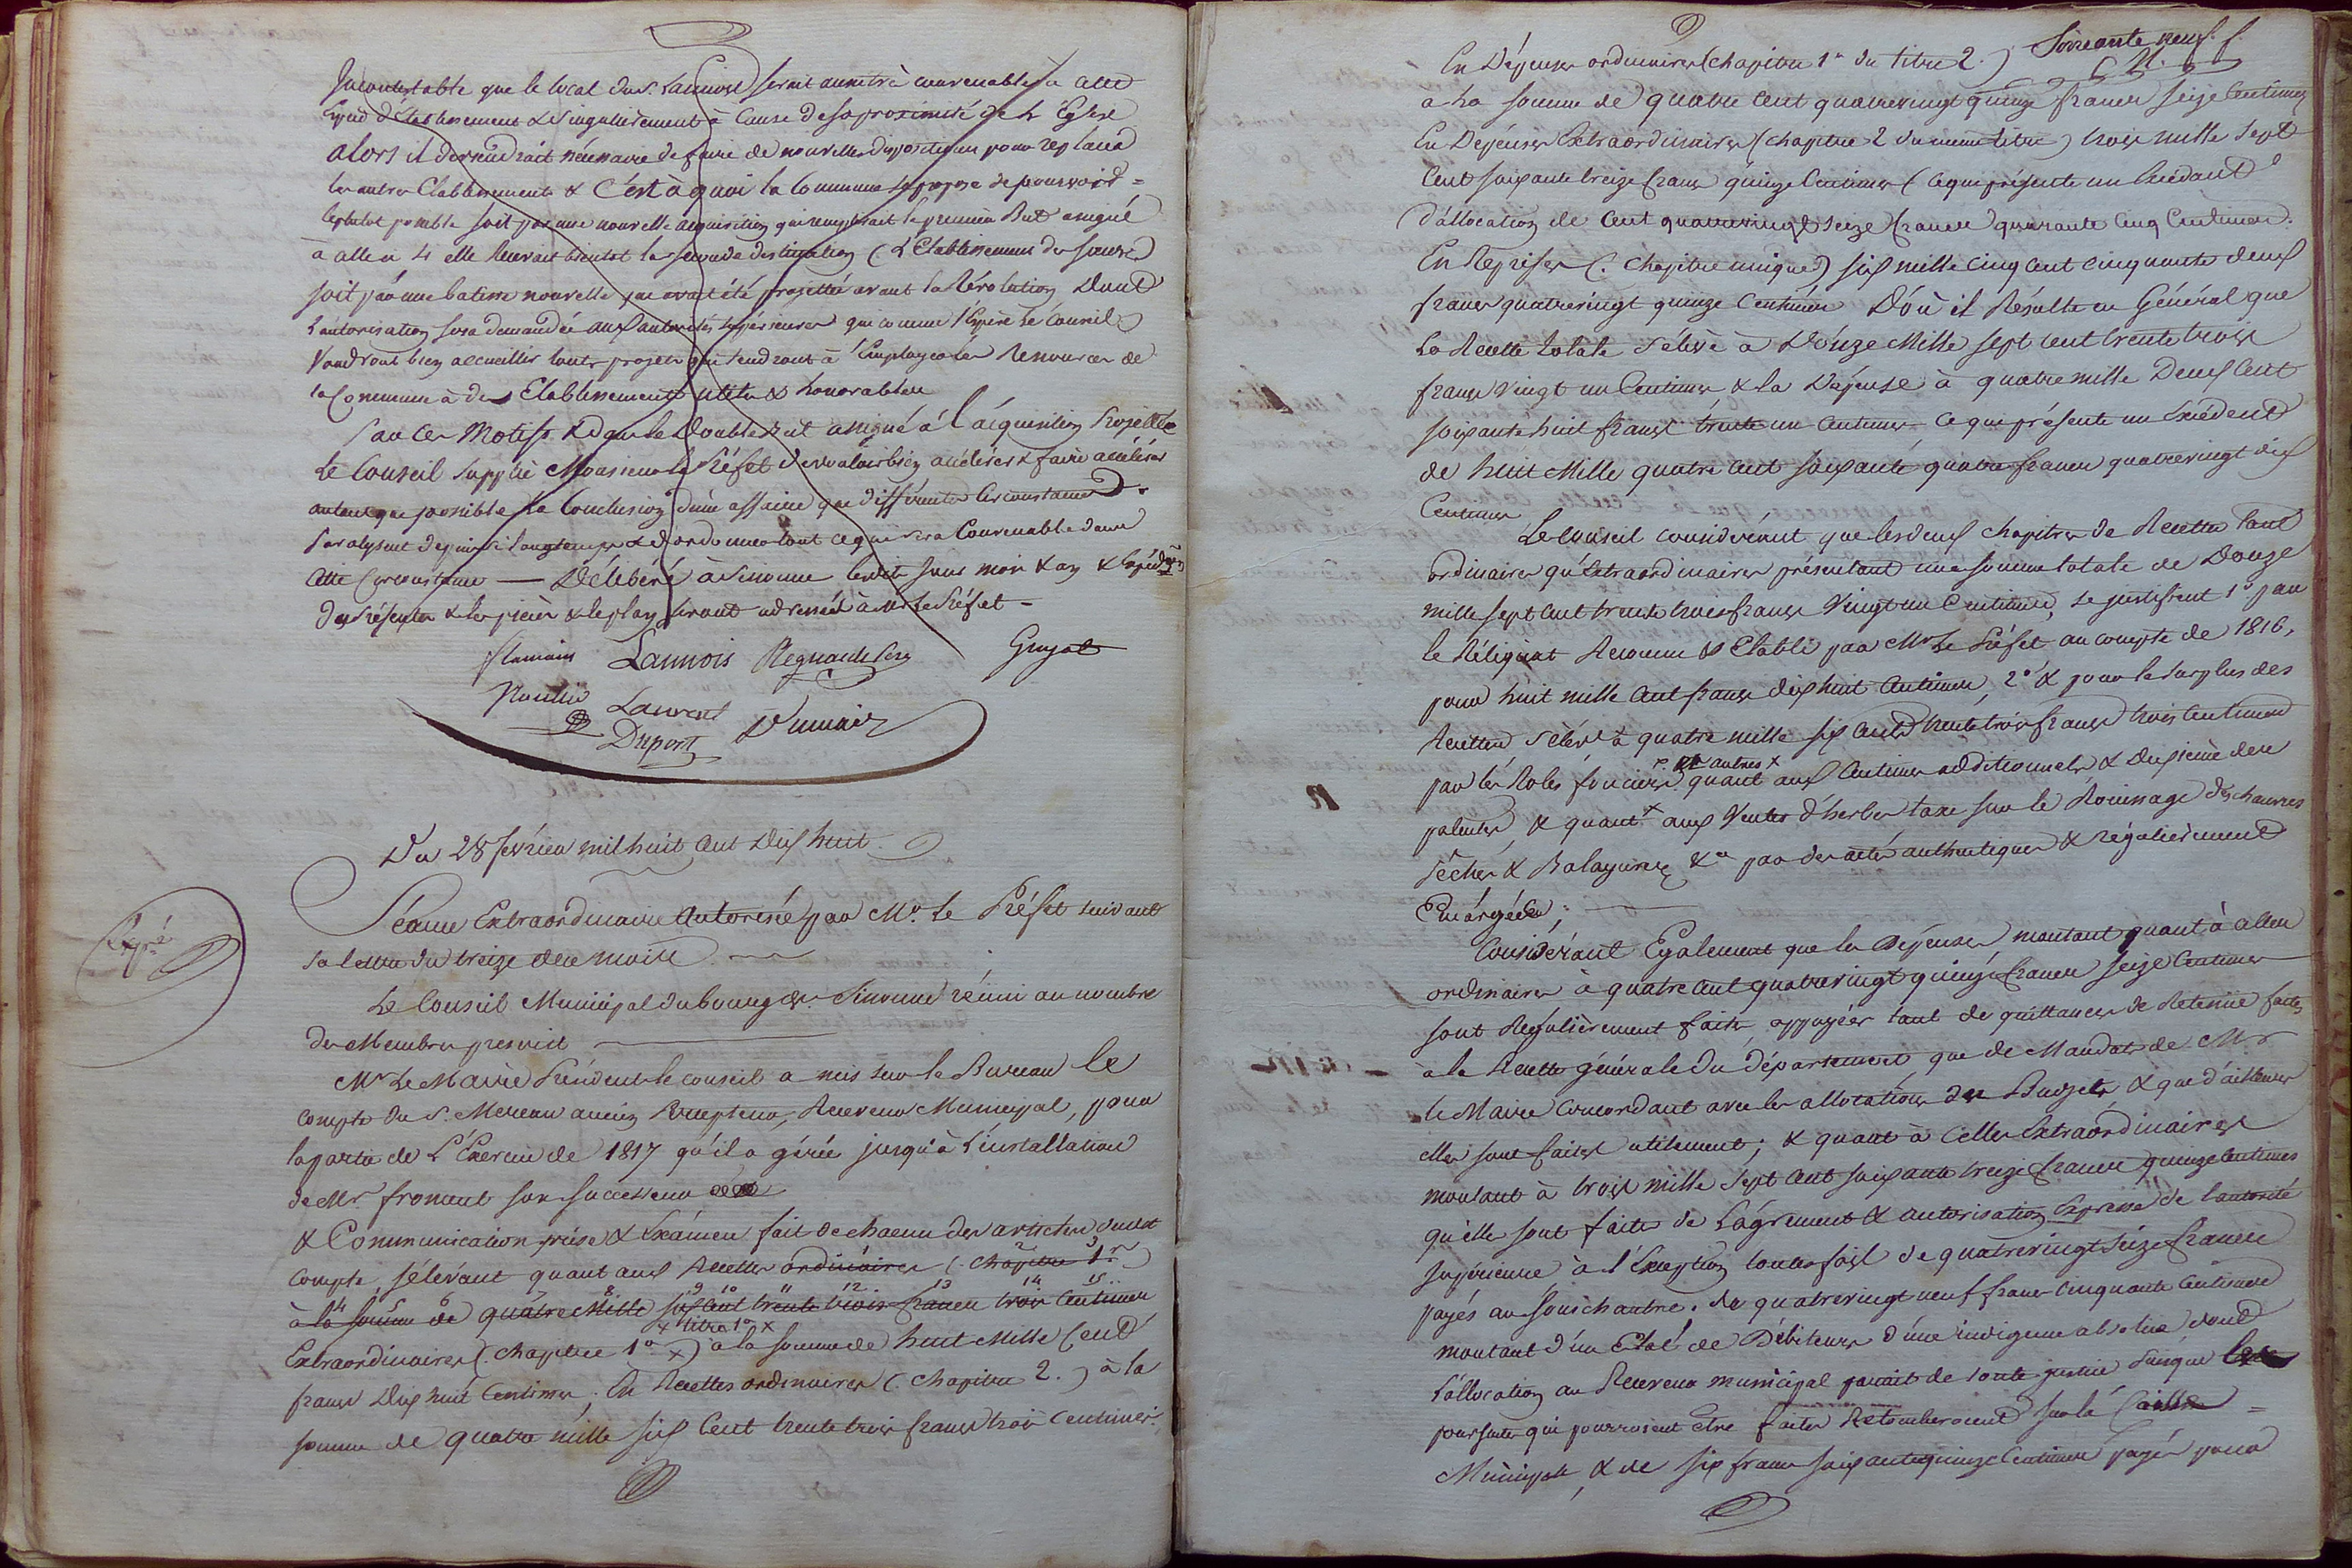 Incontestable que le local du S. Lannois serait aumétrè convenable à cette
Espèce d'Etablissement & singulièrement à Cause de sa proximité de L'Eglise
alors il deviendrait nécessaire de faire de nouvelles dispositions pour replacer
les autres Etablissements & C'est à quoi la Commune se propose de pourvoir =
le plutot possible soit par une nouvelle acquisition qui remplirait le premier But assigné
à celle ci & elle Recevrait bientot la seconde destination (L'Etablissement des soeurs)
soit par une batisse nouvelle qui avait été projettée avant la Révolution Dont
L'autorisation sera demandée aux autorités supérieures qui comme l'Espère le Conseil
Voudront bien accueillir touts projets qui tendront à Employer les Ressources de
la Commune à des Etablissements utiles & honorables
Par Ces Motifs & dans le Double But assigné à l'acquisition Projettée
Le Conseil supplie Monsieur Le Préfet de vouloir bien accélérer & faire accélérer
autant que possible la Conclusion d'une affaire que différentes Circonstances
Paralysent depuis si longtemps & d'ordonner tout ce qui sera Convenable dans
cette Circonstance — Délibéré à Sinonne lesdits jour mois & an & Expédon
des Présentes & les pièces & le plan seront adressés à Mr Le Préfet -
Lannois Regnard Guyot
Laurent
Dupont Dumair
Du 28 février mil huit Cent Dix huit
Expé
Séance Extraordinaire Autorisée par Mr. Le Préfet suivant
sa lettre du treize de ce mois
Le Conseil Municipal du bourg de Sinonne réuni au nombre
de Membres prescrit
Mr Le Maire Président le conseil a mis sur le Bureau le
compte du S. Mereau ancien Percepteur, Receveur Municipal, pour
la partie de L'Exercice de 1817 qu'il a gérée jusqu'à L'installation
de Mr fromont son successeur
& Communication prise & Examen fait de chacun des articles dudit
Compte, s'élevant quant aux Recettes ordinaires (Chapitre 1er)
à la somme de quatre Mille six Cent trente trois francs trois Centimes
x titre 1er x
Extraordinaires (Chapitre 1er x) à la somme de huit Mille Cent
francs Dix huit Centimes, En Recettes ordinaires (Chapitre 2.) à la
somme de quatre mille six Cent trente trois francs trois Centimes.
Soixante neuf. f.
En Dépenses ordinaires (Chapitre 1er du titre 2.)
à La somme de quatre Cent quatrevingt quinze francs seize Centimes
En Dépenses Extraordinaires (Chapitre 2 du même titre) trois mille sept
Cent soixante treize francs quinze Centimes (Ce qui présente un Excédant
d'allocation de Cent quatrevingt Seize francs quarante Cinq Centimes.
En Reprises (Chapitre unique) six mille cinq cent cinquante deux
francs quatrevingt quinze Centimes D'où il Résulte en Général que
La Recette totale s'élève à Douze Mille sept cent trente trois
francs Vingt un Centimes & la Dépense à quatre mille Deux Cent
soixante huit francs trente un Centimes Ce qui présente un Excédent
de huit Mille quatre cent soixante quatre francs quatrevingt dix
Centimes
Le Conseil considérant que les deux Chapitres de Recettes tant
ordinaires qu'Extraordinaires présentant une somme totale de Douze
mille sept cent trente trois francs Vingt un Centimes, se justifient 1° par
le Réliquat Reconnu & Etabli par Mr Le Préfet au compte de 1816,
pour huit mille Cent francs dix huit Centimes, 2° & pour le surplus des
Recettes s'élevt à quatre mille six Cent trente trois francs trois Centimes
autres x
par les Roles fonciers quant aux Centimes additionnels & dixième des
patentes, & quant x aux Ventes d'herbes taxe sur le Rouissage des chanvres
pêches & Balayures &a par des actes authentiques & régulièrement
Emargées;
Considérant Egalement que les Dépenses montant quant à celles
ordinaires à quatre Cent quatrevingt quinze francs seize Centimes
sont Régulièrement faites, appuyées tant de quittances de Retenue faites
à la Recette générale du département que de Mandats de Mr
le Maire Concordant avec les allocations des Budgets, & que d'ailleurs
elles sont faites utilement; & quant à Celles Extraordinaires
montant à trois mille sept cent soixante treize francs quinze Centimes
qu'elle sont faites de L'agrement & autorisation Expresse de l'autorité
supérieure à l'Exception toutefois de quatrevingt seize francs
payés au souschantre. de quatrevingt neuf francs cinquante Centimes
montant d'un Etat de Débiteurs d'une indigence absolue dont
L'allocation au Receveur municipal parait de toute justice puisque les
poursuites qui pourroient être faites Retomberoient sur la Caisse =
Municipale, & de six francs soixante quinze Centimes payés pour